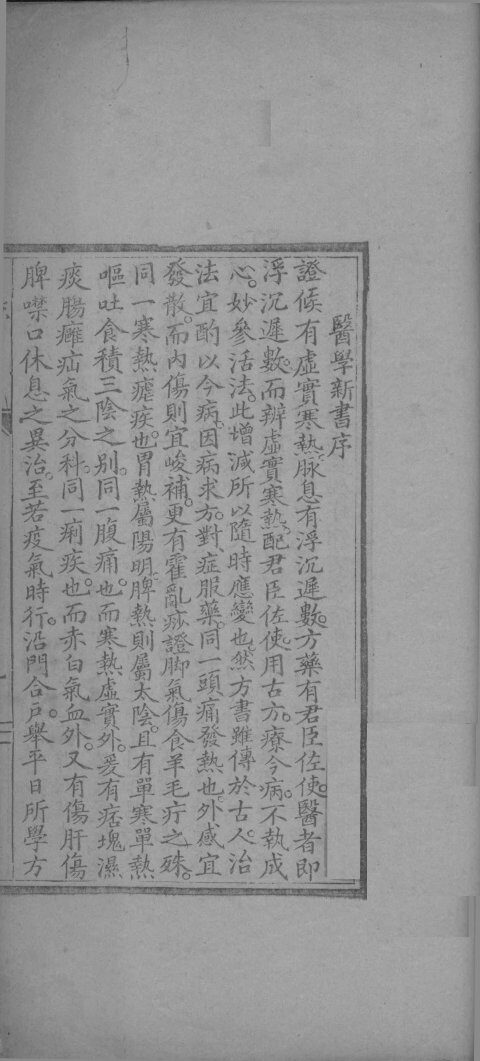 醫學新書序
證候有虛實寒熱。脉息有浮沉遲數。方藥有君臣佐使。醫者即
浮沉遲數。而辨虛實寒熱。配君臣佐使。用古方。療今病。不執成
心。妙參活法。此增減所以隨時應變也。然方書雖傳於古人。治
法宜酌以今病。因病求方。對症服藥。同一頭痛發熱也。外感宜
發散。而內傷則宜峻補。更有霍亂痧證脚氣傷食羊毛疔之殊。
同一寒熱瘧疾也。胃熱屬陽明。脾熱則屬太陰。且有單寒單熱
嘔吐食積三陰之別。同一腹痛也。而寒熱虛實外。爰有痞塊濕
痰腸癰疝氣之分科。同一痢疾也。而赤白氣血外。又有傷肝傷
脾噤口休息之異治。至若疫氣時行。沿門合戶。舉平日所學方